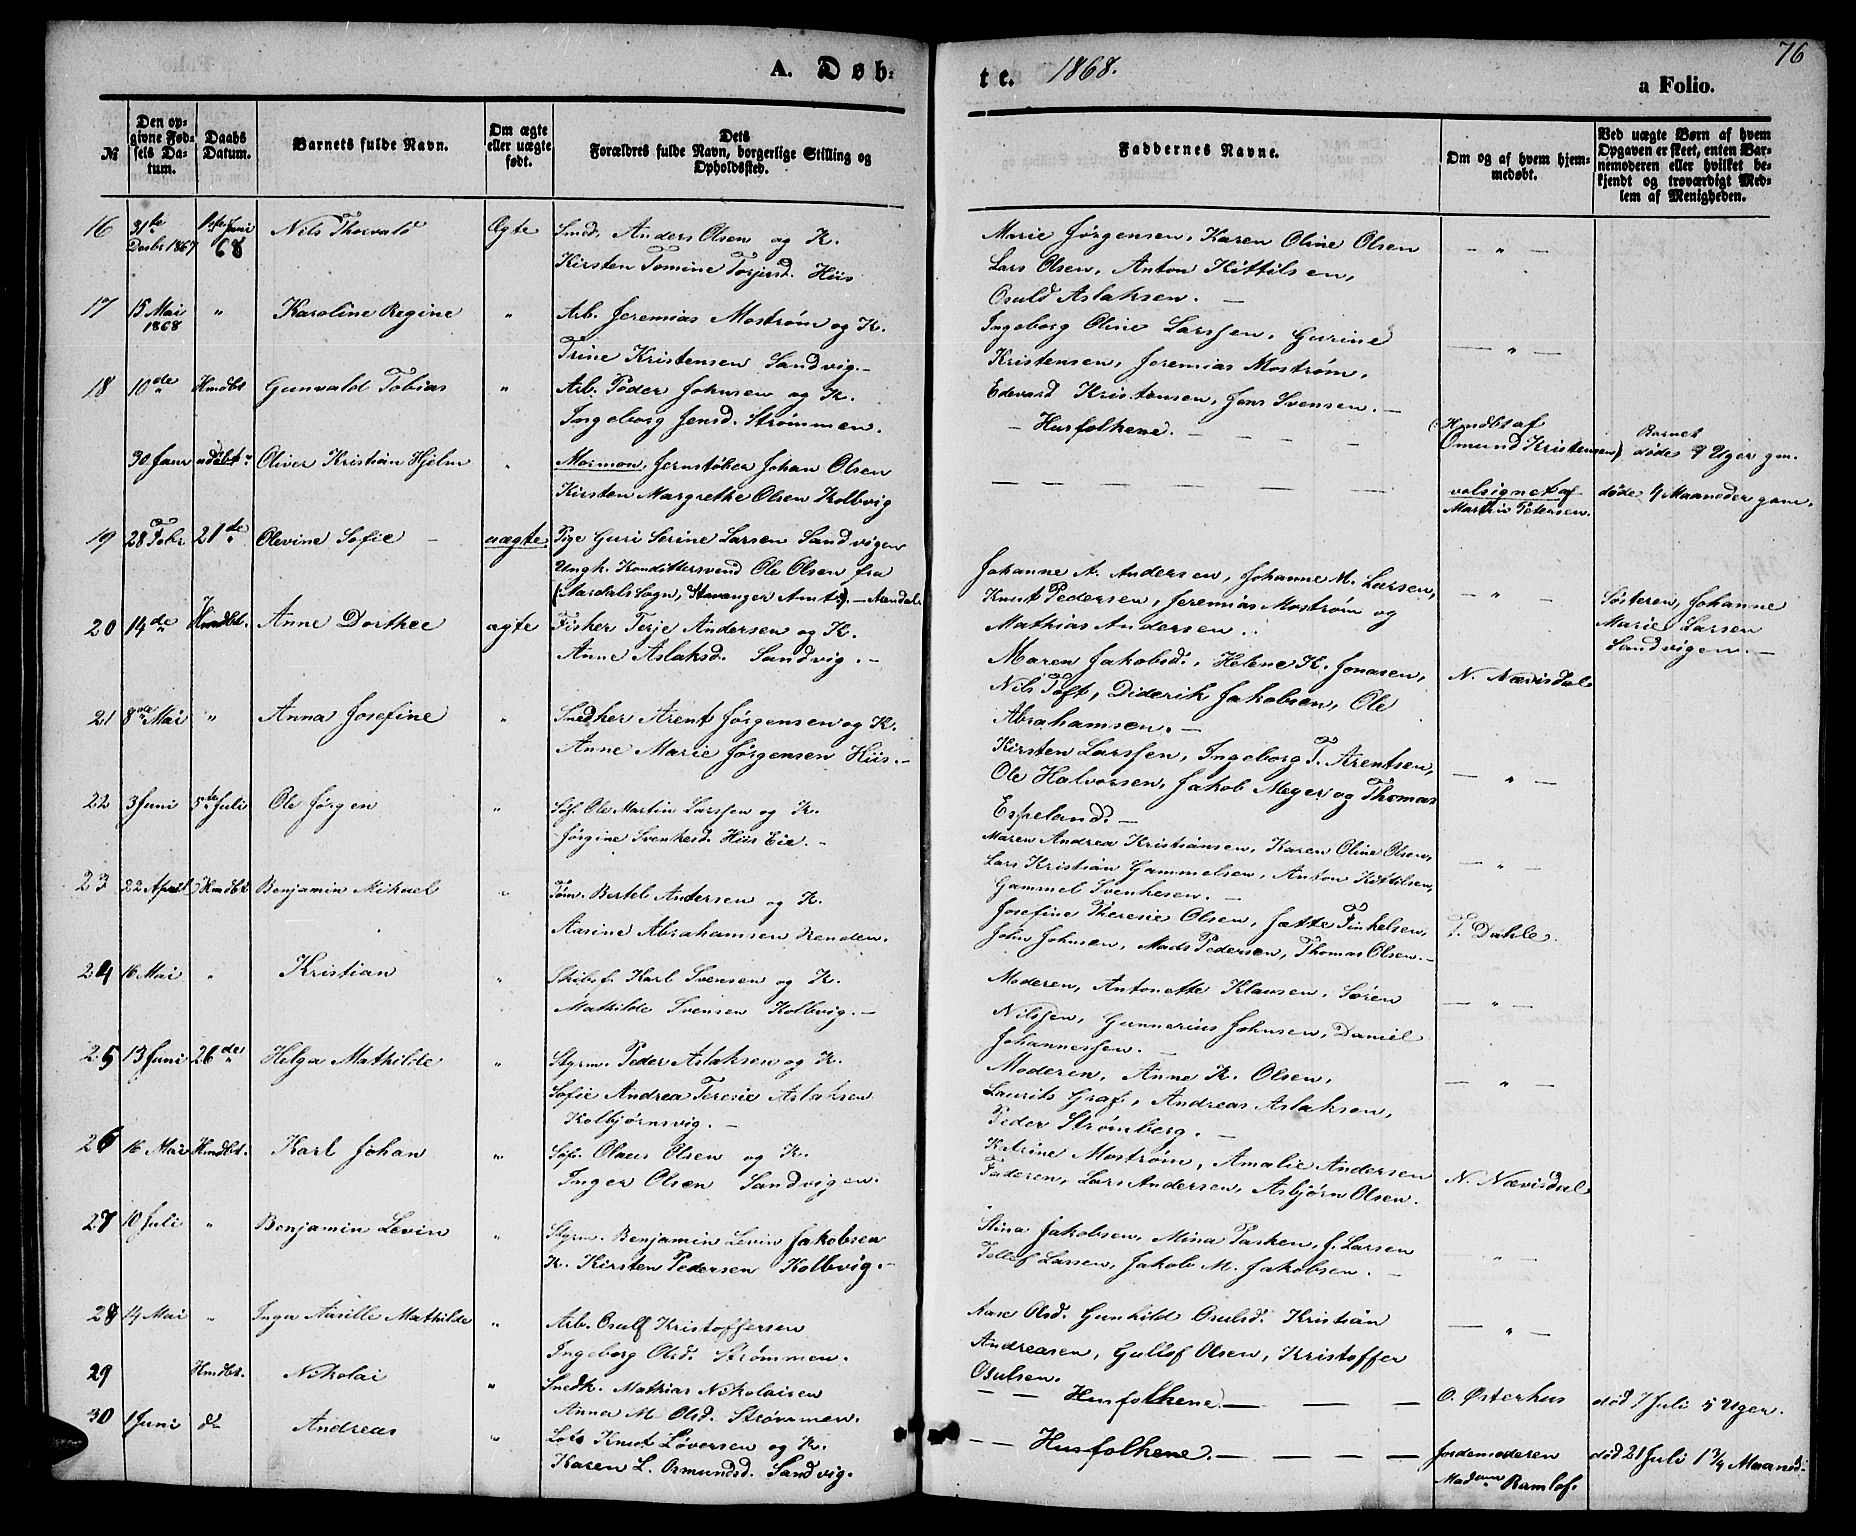 A. Døb=
te. 1868.
76
a Folio.
№
Den op=
givne Fød=
sels Da=
tum.
Daabs
Datum.
Barnets fulde Navn.
Om ægte
eller uægte
født.
Dets
Forældres fulde Navn, borgerlige Stilling og
Opholdssted.
Faddernes Navne.
Om og af hvem hjem=
medøbt.
Ved uægte Børn af hvem
Opgaven er skeet, enten Bar=
nemoderen eller hvilket be=
kjendt og troværdigt Med=
lem af Menigheden.
16 31te Desbr 1867 1ste Juni 68 Nils Thorvald Ægte Smed. Anders Olsen og K.
Kirsten Tomine Torjersd. Hiis
Marie Jørgensen, Karen Oline Olsen
Lars Olsen, Anton Kittilsen,
Osuld Aslaksen. —
— " —
17 15 Mai 1868 " Karoline Regine " Arb. Jeremias Mostrøm og K.
Trine Kristensen Sandvig. —
Ingeborg Oline Larssen, Gurine
Kristensen, Jeremias Mostrøm,
Edevard Kristensen, Jens Svensen. —
— " —
18 10de " Hmdbt Gunvald Tobias " Arb. Peder Johnsen og K.
Ingeborg Jensd. Strømmen.
— Husfolkene. —
(Hmdbt af
Omund Kristensen)
Barnet
døde 9 Uger gm.
30 Janr udøbt " Oliver Kristian Hjelm " Mormon, Jernstøber Johan Olsen
Kirsten Margrethe Olsen Kolbvig
— — — — — —
velsignet af
Martin Petersen.
døde 4 Maaneder gam.
19 28 Febr 21de " Olevine Sofie — uægte Pige Guri Serine Larsen Sandvigen
Ungk. Kondittersvend Ole Olsen fra
(Aardals Sogn, Stavanger Amt). — Arendal.
Johanne A. Andersen, Johanne M. Larsen,
Knut Pedersen, Jeremias Mostrøm og
Mathias Andersen.
— " —
Søsteren, Johanne
Marie Larsen
Sandvigen. —
20 14de " Hmdbt. Anne Dorthee ægte Fisker Terje Andersen og K.
Anne Aslaksd. Sandvig. —
Maren Jakobsd., Helene K. Jonasen,
Nils Toft, Diderik Jakobsen, Ole
Abrahamsen. —
N. Nævisdal
21 8de Mai " Anna Josefine " Snedker Arent Jørgensen og K.
Anne Marie Jørgensen Hiis. —
Kirsten Larssen, Ingeborg T. Arentsen,
Ole Halvorsen, Jakob Meyer og Thomas
Espeland. —
— " —
22 3 Juni 5te Juli Ole Jørgen " Søf. Ole Martin Larssen og K.
Jørgine Svenkesd. Hiis Eie. —
Maren Andrea Kristiansen, Karen Oline Olsen,
Lars Kristian Gammelsen, Anton Kittilsen,
Gammel Svenkesen. —
— " —
23 22 April Hmdbt Benjamin Mikael " Tøm. Bertel Andersen og K.
Aasine Abrahamsen Renden.
Josefine Theresie Olsen, Jætte Finkelsen,
John Johnsen, Mads Pedersen, Thomas Olsen. —
T. Dahle.
24 16 Mai " Kristian " Skibsf. Karl Svensen og K.
Mathilde Svensen Kolbvig. —
Moderen, Antonette Klausen, Søren
Nilssen, Gunnerius Johnsen, Daniel
Johannessen. —
— " —
25 13 Juni 26de " Helga Mathilde " Styrm. Peder Aslaksen og K.
Sofie Andrea Teresie Aslaksen
Kolbjørnsvig. —
Moderen, Anne K. Olsen,
Laurits Graf, Andreas Aslaksen,
Peder Strømberg. —
— " —
26 16 Mai Hmdbt. Karl Johan " Søf. Olaus Olsen og K.
Inger Olsen Sandvigen.
Katrine Mostrøm, Amalie Andersen
Faderen, Lars Andersen, Asbjørn Olsen.
N. Nævisdal
27 10 Juli " Benjamin Levin " Styrm. Benjamin Levin Jakobsen
K. Kirsten Pedersen Kolbvig. —
Stina Jakobsen, Mina Pasken, J. Larsen
Tellef Lassen, Jakob M. Jakobsen. —
"
28 14 Mai " Inga Aasille Mathilde " Arb. Osulf Kristoffersen
Ingeborg Olsd. Strømmen.
Aase Olsd. Gunhild Osulsd. Kristian
Andreasen, Gullof Olsen, Kristoffer
Osulsen.
— " —
29 Hmdbt. Nikolai " Snedk. Mathias Nikolaisen
Anna M Olsd. Strømmen.
— — Husfolkene. — — —
O. Østerhus
død 7 Juli 5 Uger.
30 1 Juni do Andreas " Lots Knut Løversen og K.
Karen L. Osmundsd. Sandvig.
— — Husfolkene. — — —
Jordemoderen
Madame Ramlof.
død 21 Juli 1 3/4 Maaned.